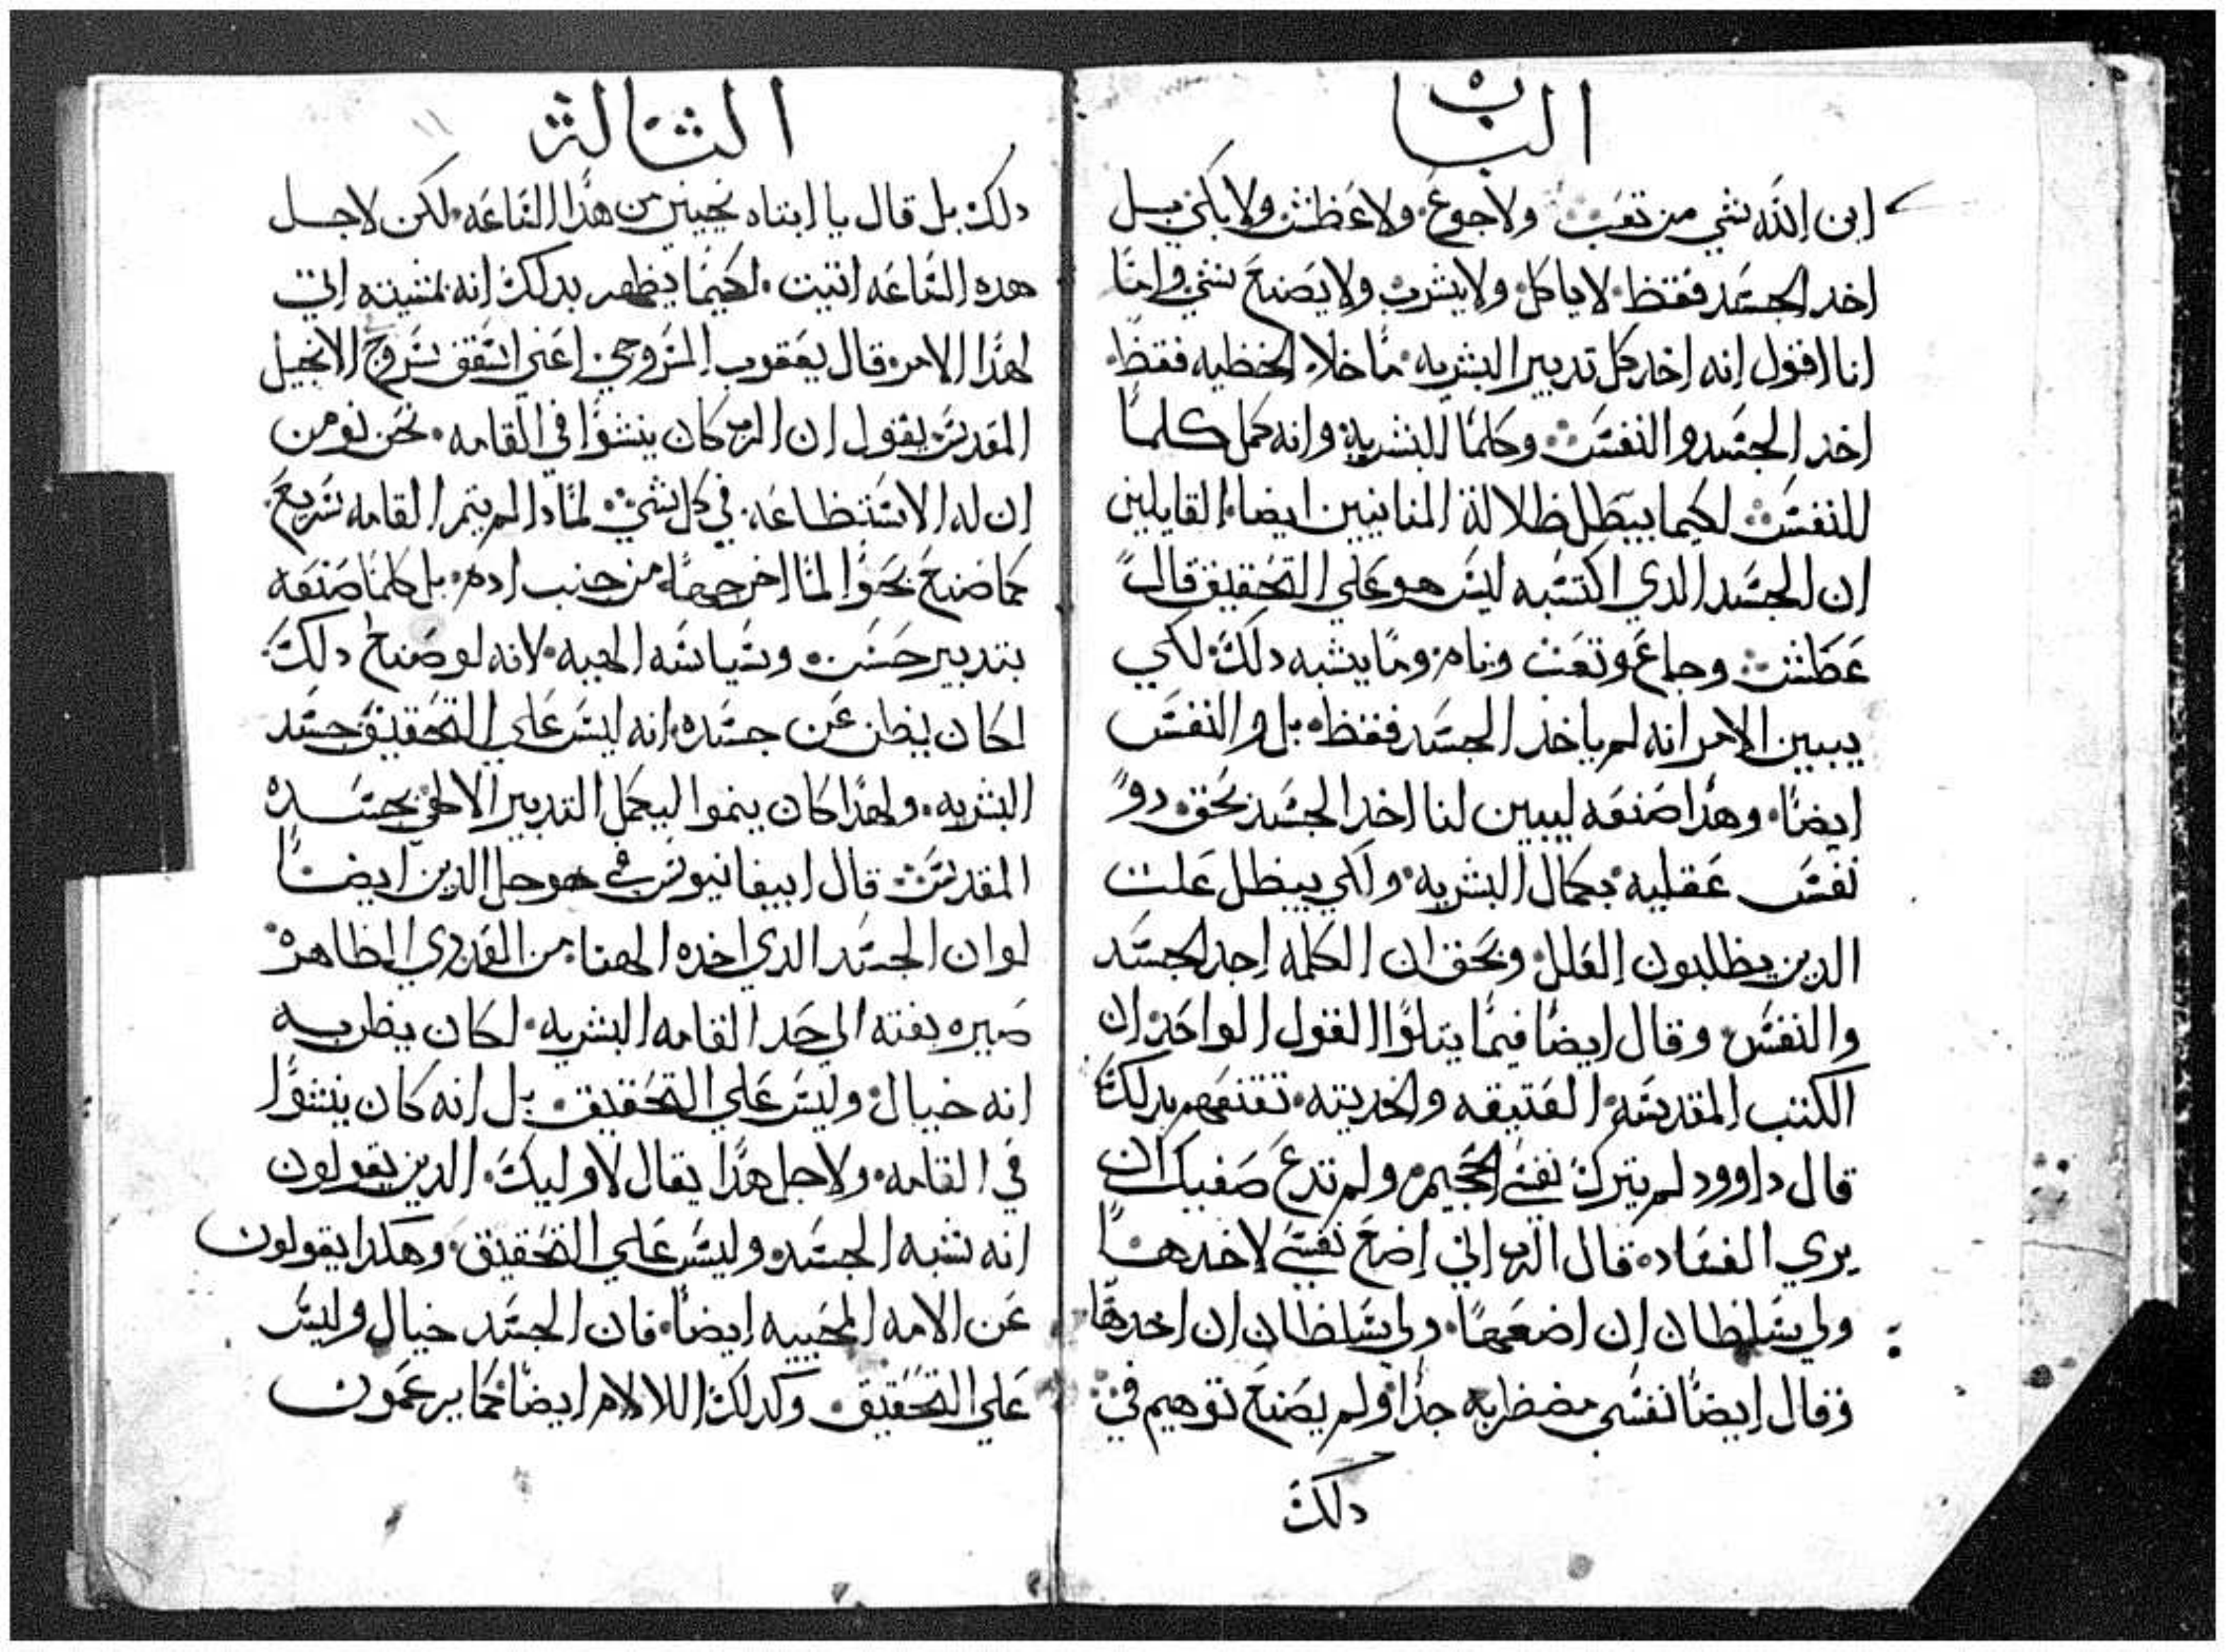 الباب
ابن الله شي من تعب ولا جوع ولا عظش ولا بكي بل
اخد الجسد فقظ لا ياكل ولا يشرب ولا يصنع شي واما
انا اقول انه اخد كل تدبير البشريه ما خلا الخظيه فقظ
اخد الجسد والنفس وكلما للبشرية وانه كمل كلما
للنفس لكيما يبطل ظلالة المنانيين ايضا القايلين
ان الجسد الدي اكتسبه ليس هو علي التحقيق قال
عطش وجاع وتعب ونام وما يشبه دلك لكي
يبين الامر انه لم ياخد الجسد فقظ بل والنفس
ايضا وهدا صنعه ليبين لنا اخد الجسد بحق دو
نفس عقليه بكمال البشريه ولكي يبظل علت
الدين يظلبون العلل وبحق ان الكلمه اخد الجسد
والنفس وقال ايضا فيما يتلوا القول الواحد ان
الكتب المقدسه العتيقه والحديته تفهم بدلك
قال داوود لم يترك نفسي الجحيم ولم تدع صفيك ان
يري الفساد قال الرب اني اضع نفسي لاخدها
ولي سلظان ان اضعها ولي سلظان ان اخدها
وقال ايضا نفسي مضظربه جدا ولم يصنع توهيم في
دلك
الثالث
دلك بل قال يا ابتاه نجيني من هدا الساعه لكن لاجل
هده الساعه اتيت لكيما يظهر بدلك انه بمشيته اتي
لهدا الامر قال يعقوب السروجي اعني اسقف سروج الانجيل
المقدس يقول ان الرب كان ينشوا في القامه نحن نومن
ان له الاستظاعه في كل شي لمادا لم يتم القامه سريع
كما صنع بحوا لما اخرجها من جنب ادم بل كلما صنعه
بتدبير حسن وسياسه الهيه لانه لو صنع دلك
لكان يظن عن جسده انه ليس علي التحقيق جسد
البشريه ولهدا كان ينموا ليكمل التدبير الالهي بجسده
المقدس قال ابيفانيوس في هوجل الدين ايضا
لو ان الجسد الدي اخده الهنا من العدري الظاهره
صيره بغته الي حد القامه البشريه لكان يظن به
انه خيال وليس علي التحقيق بل انه كان ينشوا
في القامه ولاجل هدا يقال لاوليك الدين يقولون
انه شبه الجسد وليس علي التحقيق وهكدا يقولون
عن الامه المحييه ايضا فان الجسد خيال وليس
علي التحقيق وكدلك اللالام ايضا كما يزعمون